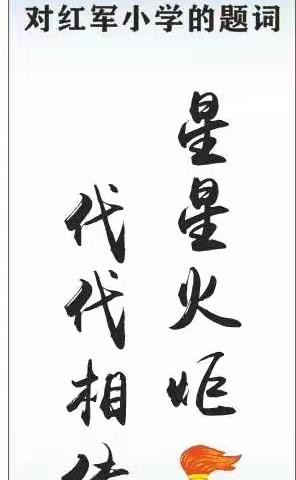 对红军小学的题词
星星火炬
代代相